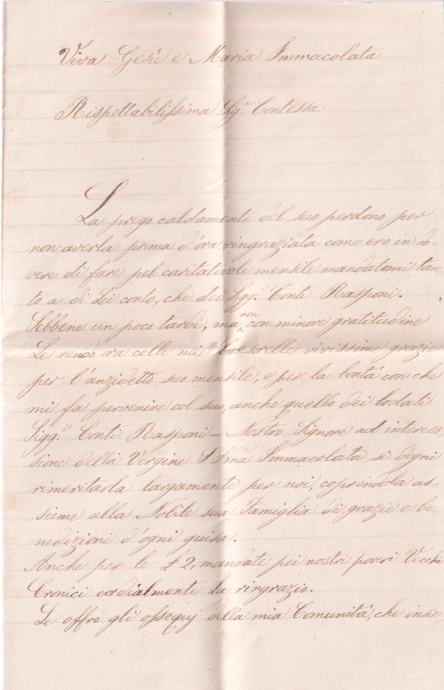 Viva Gesù e Maria Immacolata
Rispettabilissima Sigra Contessa
La prego caldamente del suo perdono per
non averla prima d'ora ringraziata come ero in do
vere di fare pel caritatevole mensile mandatomi tan
to a di Lei conto, che dei Sigg.i Conti Rasponi.
Sebbene un poco tardi, ma non con minore gratitudine
Le rendo ora colle mie Consorelle vivissime grazie
per l'anzidetto suo mensile, e per la bontà con che
mi fa pervenire col suo, anche quello dei lodati
Sigg.i Conti Rasponi — Nostro Signore ad interces
sione della Vergine SSma Immacolata si degni
rimeritarla largamente per noi, coprendola as
sieme alla Nobile sua Famiglia di grazie e be
nedizioni d'ogni guisa.
Anche per le £ 2, mandate pei nostri poveri Vecchi
Cronici cordialmente La ringrazio.
Le offro gli ossequj della mia Comunità, che